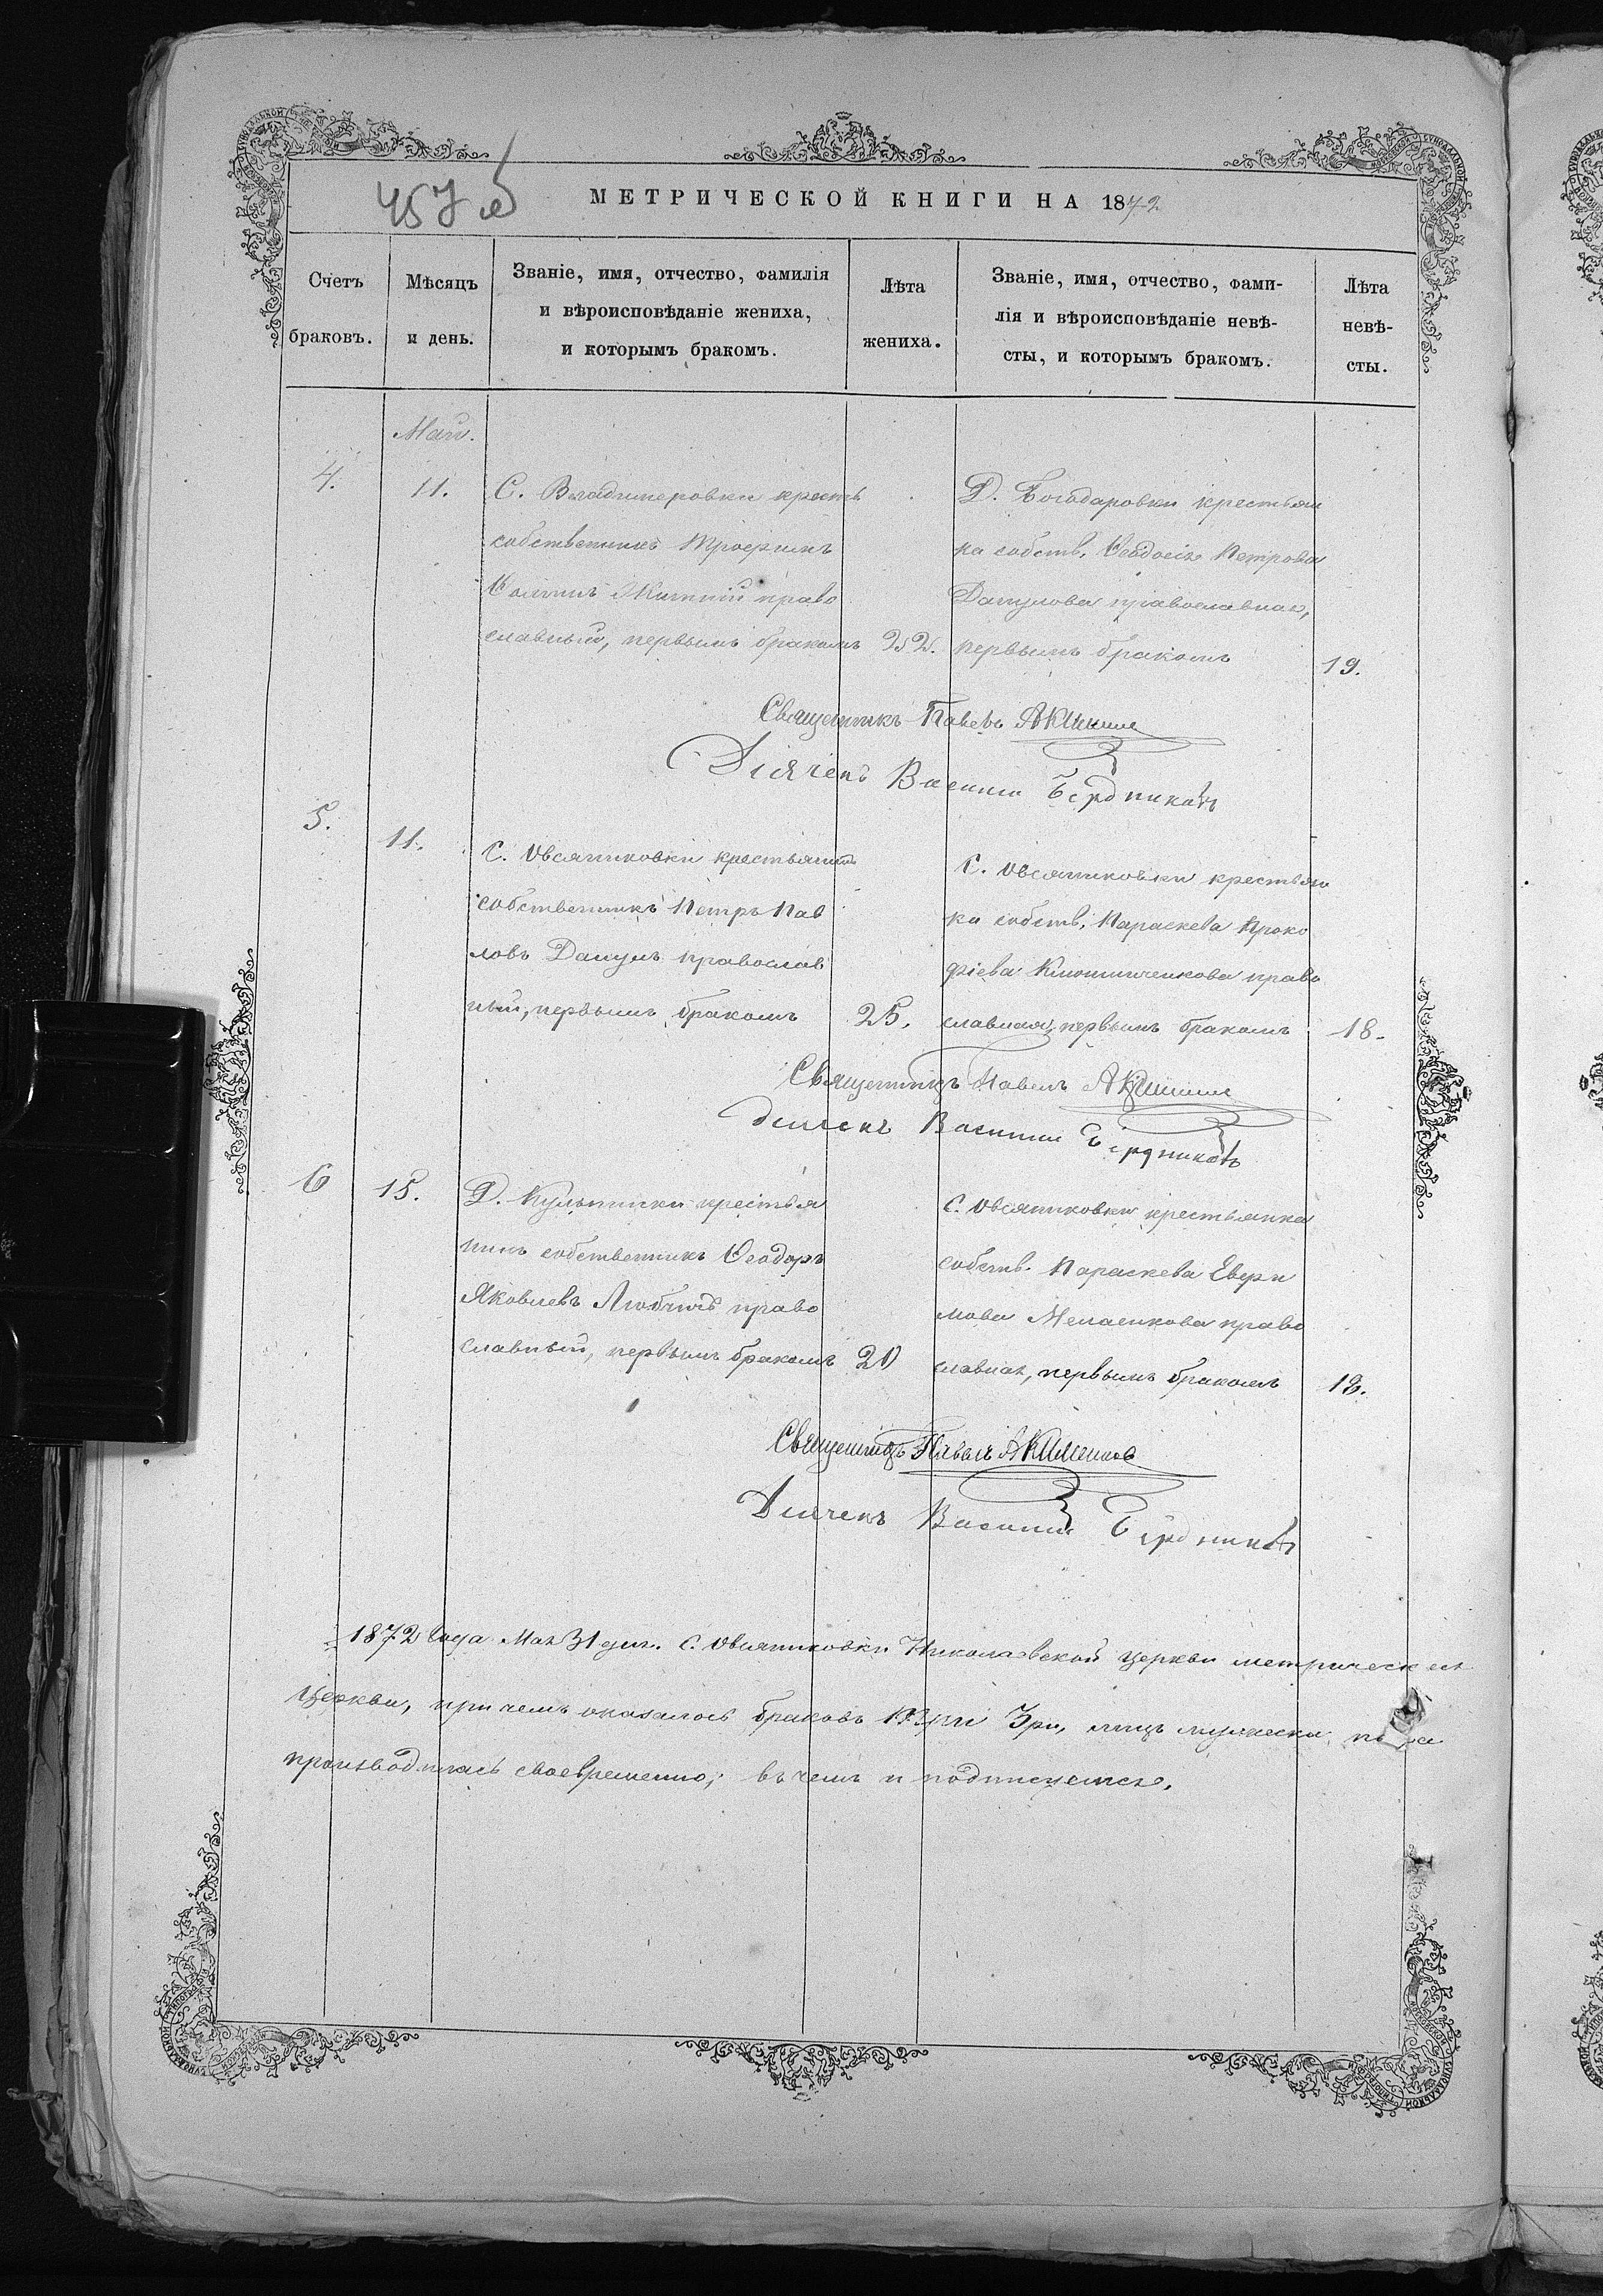 457 об
МЕТРИЧЕСКОЙ КНИГИ НА 1872
Счетъ браковъ.
Мѣсяцъ и день.
Званіе, имя, отчество, фамилія
и вѣроисповѣданіе жениха,
и которымъ бракомъ.
Лѣта
жениха.
Званіе, имя, отчество, фами-
лія и вѣроисповѣданіе невѣ-
сты, и которымъ бракомъ.
Лѣта
невѣ-
сты.
Май.
4.
11.
С. Владимеровки крестъ
собственникъ Трофимъ
православный, первымъ бракомъ
Д. Богодаровки крестьян
ка собств. Ѳеодосія Петрова
Дацулова православная,
первымъ бракомъ
19.
Священникъ Павелъ
Діячекъ Василий Бердниковъ
5.
11.
С. Овсяниковки крестьянинъ
собственникъ Петръ Пав
ловъ Дацулъ православ
ный, первымъ бракомъ
25.
С. Овсяниковки крестьян
ка собств. Параскева Проко
фіева право
славная, первымъ бракомъ
18.
Священникъ Павелъ
Дьячекъ Василий Бердниковъ
6
15.
Д. крестья
нинъ собственникъ Ѳеодоръ
Яковлевъ право
славный, первымъ бракомъ
20
С. Овсяниковки крестьянка
собств. Параскева Евфи
мова право
славная, первымъ бракомъ
18.
Священникъ Павелъ Акименковъ
Дьячекъ Василий Бердниковъ
1872 года Мая 31 дня. С. Овсяниковки Николаевской церкви метрическ
церкви, при чемъ оказалось браковъ три, лицъ мужеска
производилась своевременно; въ чемъ и подписуемся.